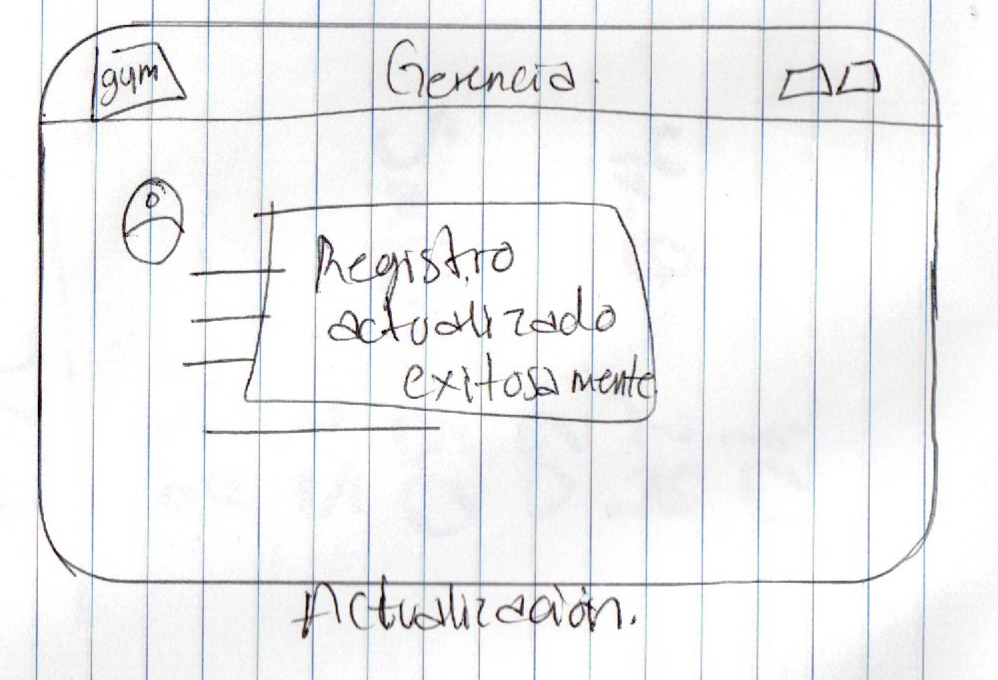 gym
Gerencia.
Registro
actualizado
exitosamente.
Actualización.